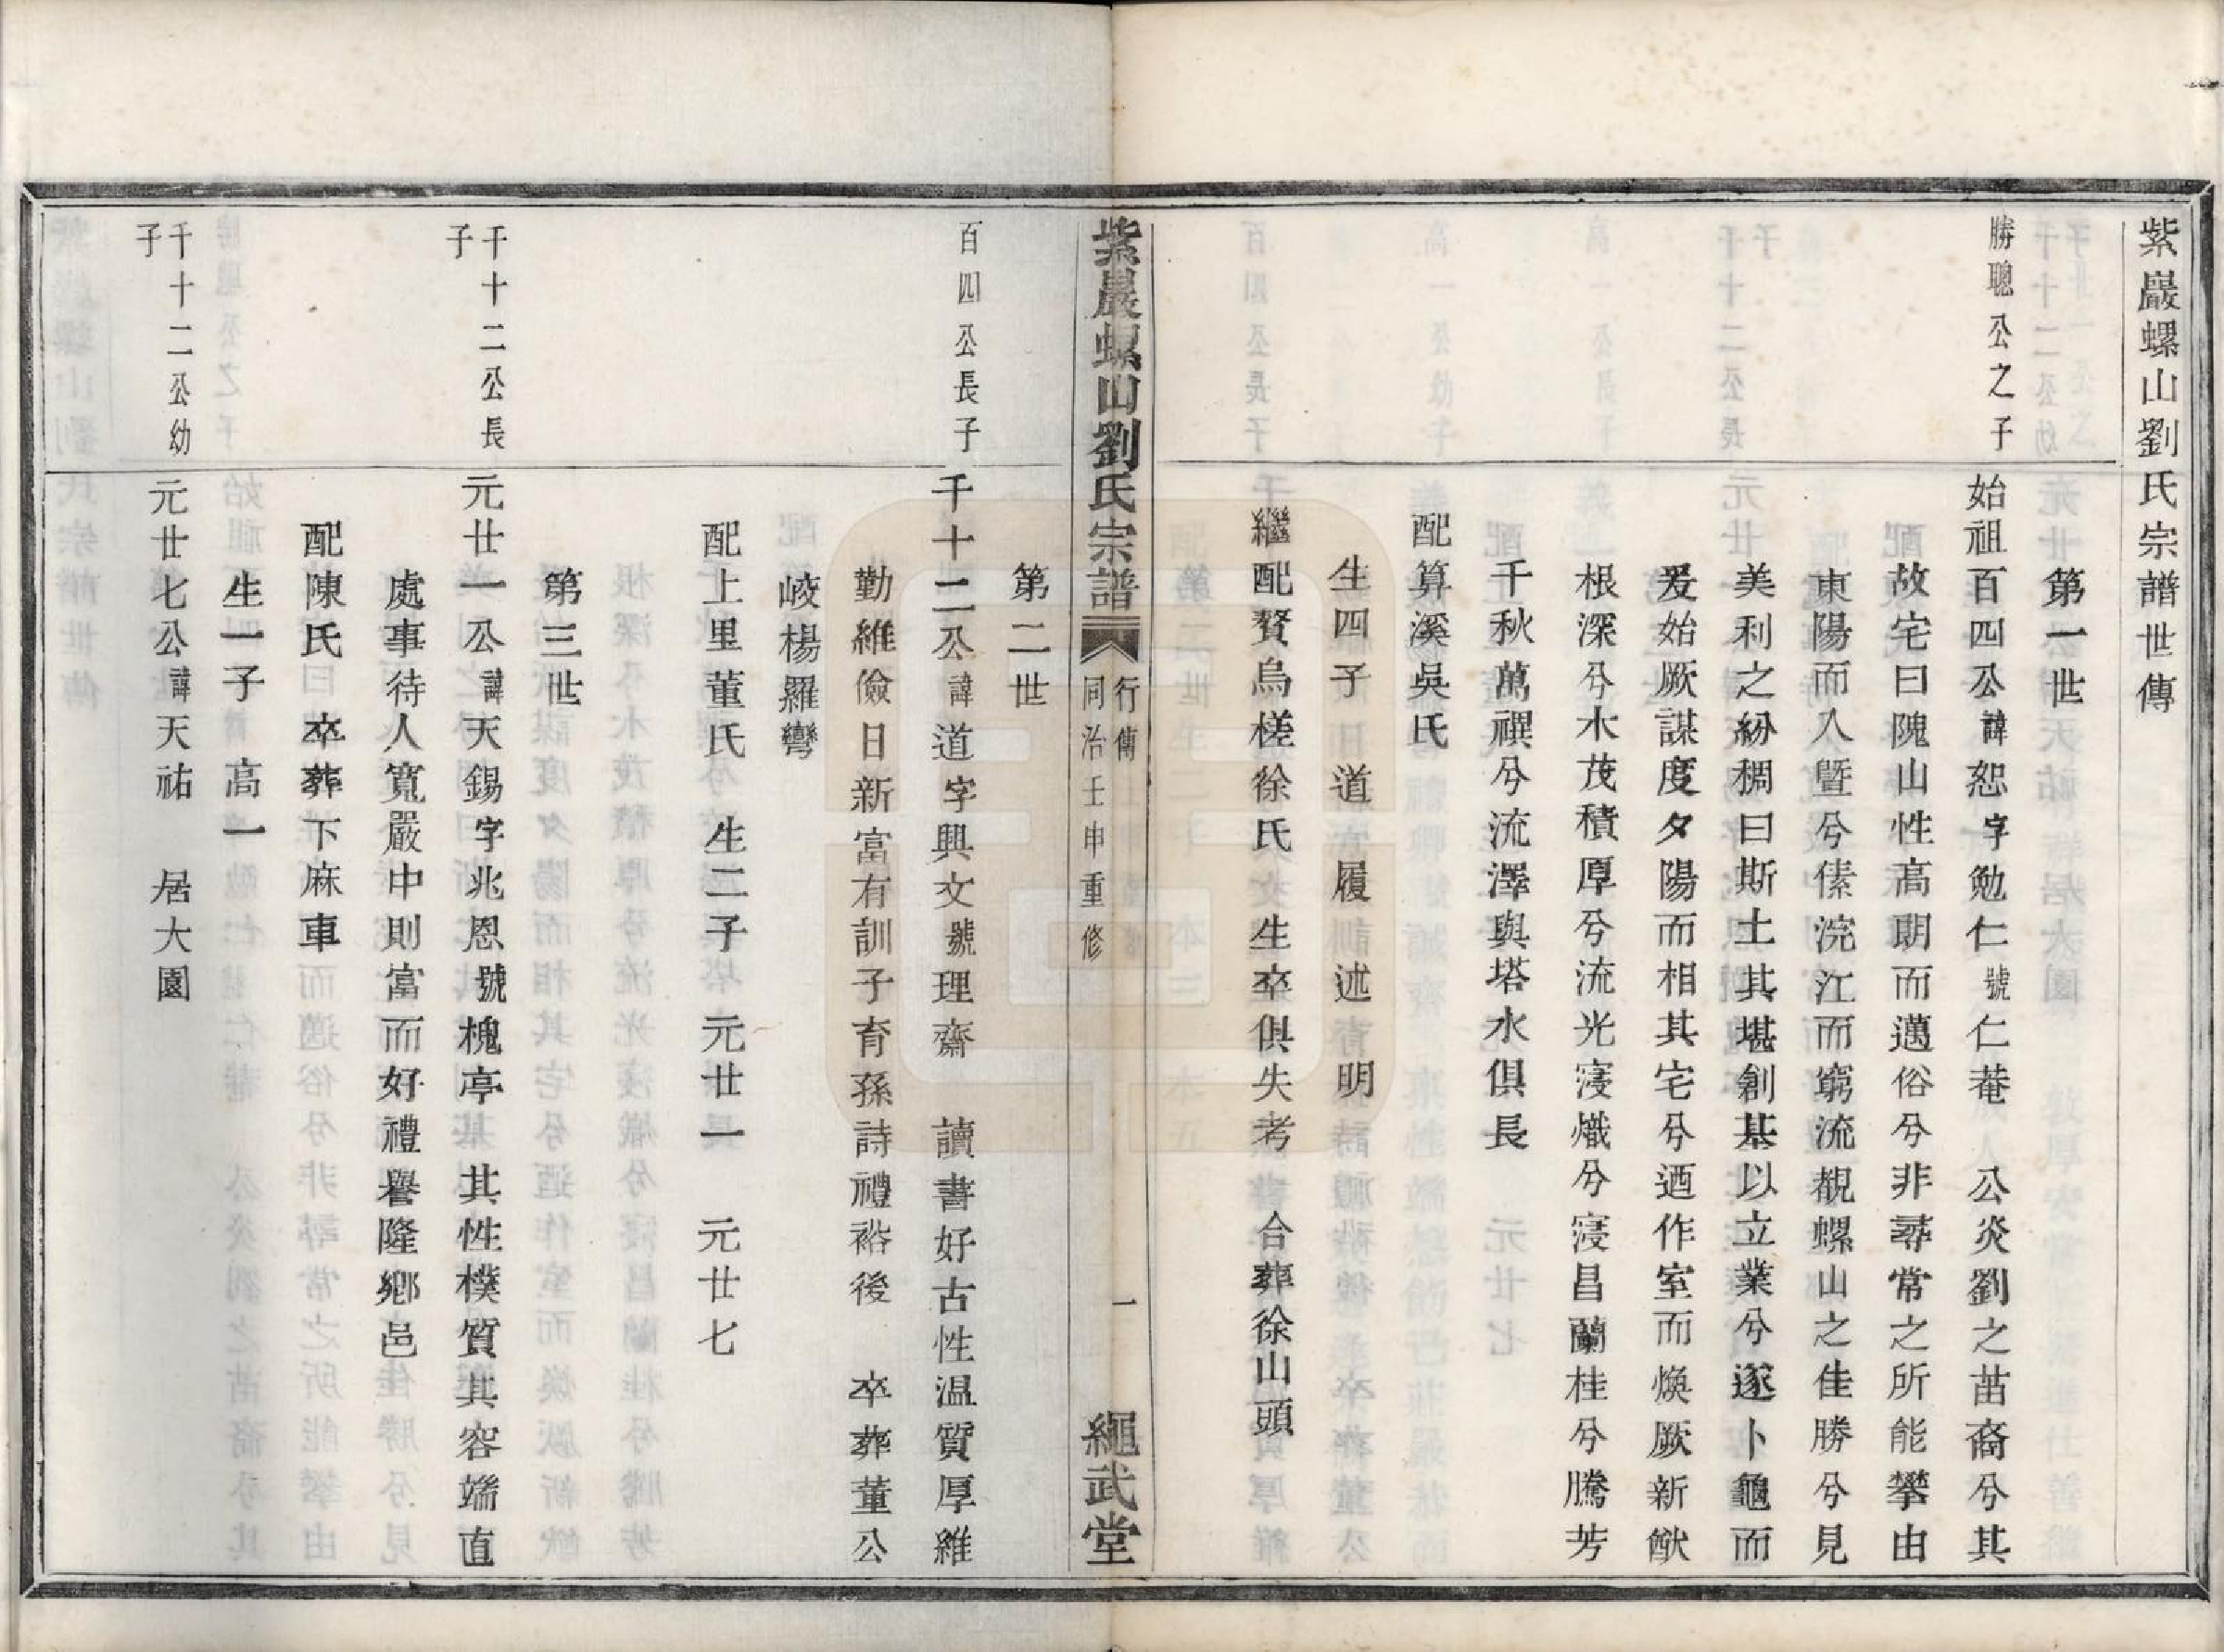 紫巖螺山劉氏宗譜世傳
第一世
勝聰公之子
始祖百四公諱恕字勉仁號仁菴　公炎劉之苗裔兮其
故宅曰隗山性高朗而邁俗兮非尋常之所能攀由
東陽而入暨兮傃浣江而窮流覩螺山之佳勝兮見
美利之紛稠曰斯土其堪創基以立業兮遂卜龜而
爰始厥謀度夕陽而相其宅兮迺作室而煥厥新猷
根深兮木茂積厚兮流光寖熾兮寖昌蘭桂兮騰芳
千秋萬禩兮流澤與塔水俱長
配算溪吳氏
生四子　道　履　述　明
繼配贅烏槎徐氏　生卒俱失考　合葬徐山頭
紫巖螺山劉氏宗譜
行傳
同治壬申重修
一
繩武堂
第二世
百四公長子
千十二公諱道字興文號理齋　讀書好古性温質厚維
勤維儉日新富有訓子育孫詩禮裕後　卒葬董公
崚楊羅彎
配上里董氏　生二子　元廿一　元廿七
第三世
千十二公長
子
元廿一公諱天錫字兆恩號槐亭　其性樸質其容端直
處事待人寬嚴中則富而好禮譽隆鄉邑
配陳氏　卒葬下麻車
生一子　高一
千十二公幼
子
元廿七公諱天祐　居大園